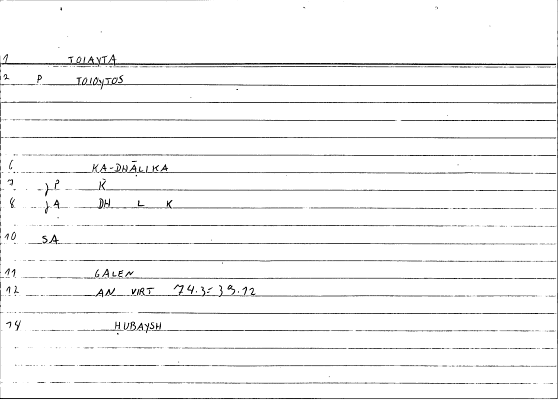 1 TOIAYTA
2 P TOIOYTOS
6 KA-DHĀLIKA
7 jP K
8 jA DH L K
10 SA
11 GALEN
12 AN VIRT 74.3= 39.12
14 HUBAYSH